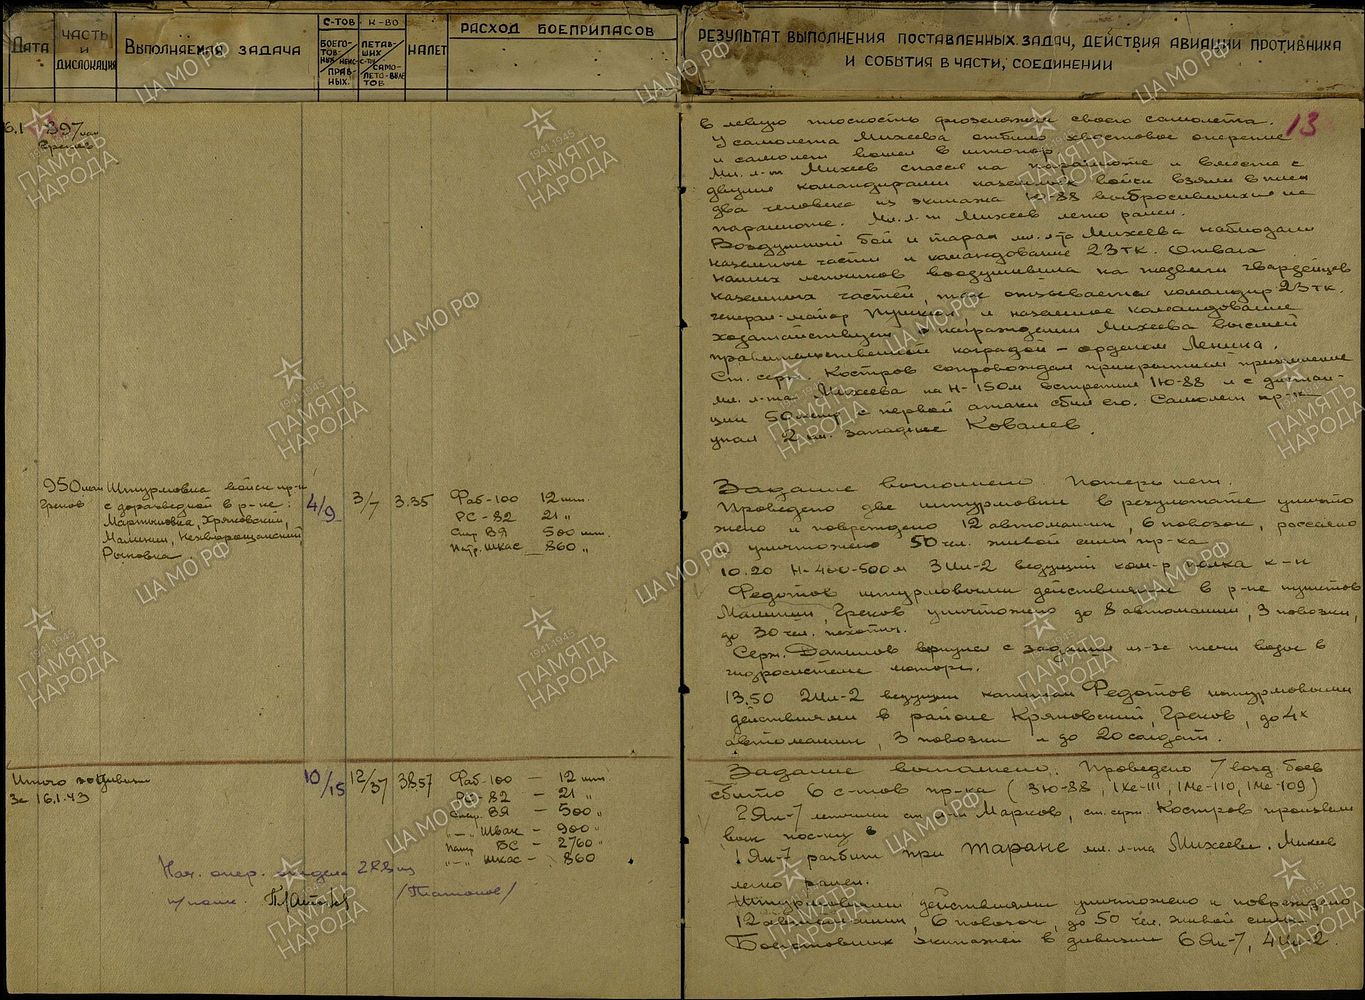 ДАТА
ЧАСТЬ И ДИСЛОКАЦИЯ
ВЫПОЛНЯЕМАЯ ЗАДАЧА
С-ТОВ
БОЕГО-ТОВ-НЫХ НЕИС-ПРАВ-НЫХ.
К-ВО
ЛЕТАВ-ШИХ С-ТОВ САМО-ЛЕТО-ВЫЛЕТОВ
НАЛЕТ
РАСХОД БОЕПРИПАСОВ
РЕЗУЛЬТАТ ВЫПОЛНЕНИЯ ПОСТАВЛЕННЫХ ЗАДАЧ, ДЕЙСТВИЯ АВИАЦИИ ПРОТИВНИКА
И СОБЫТИЯ В ЧАСТИ, СОЕДИНЕНИИ
13
6.1 897 иап
Греков
в левую плоскость фюзеляжа своего самолета.
У самолета Михеева отбило хвостовое оперение
и самолет вошел в штопор.
Мл. л-т Михеев спасся на парашюте и вместе с
двумя командирами наземных войск взяли в плен
два человека из экипажа Ю-88 выбросившихся на
парашюте. Мл. л-т Михеев легко ранен.
Воздушный бой и таран мл. л-та Михеева наблюдали
наземные части и командование 23 тк. Отвага
наших летчиков воодушевила на подвиги гвардейцев
наземных частей, так отзывается командир 23 тк.
генерал-майор Пушкин, и наземное командование
ходатайствует о награждении Михеева высшей
правительственной наградой – орденом Ленина.
Ст. серж. Костров сопровождая прикрытием приземление
мл. л-та Михеева на Н-150м встретил 1 Ю-88 и с дистан-
ции 50 метр. с первой атаки сбил его. Самолет пр-ка
упал 2 км. западнее Ковалев.
950 шап Штурмовка войск пр-ка
Греков с доразведкой в р-не:
Мартыновка, Хряновский,
Малинин,
Рыновка.
4/9 3/7 3.35
Фаб-100 12 шт.
РС-82 21 "
Снар ВЯ 500 шт.
Патр. Шкас 860 "
Задание выполнено. Потерь нет.
Проведено две штурмовки в результате уничто
жено и повреждено 12 автомашин, 6 повозок, рассеяно
и уничтожено 50 чел. живой силы пр-ка
10.20 Н-400-500м 3 Ил-2 ведущий ком-р полка к-н
Федотов штурмовыми действиями в р-не пунктов
Малинин, Греков уничтожено до 8 автомашин, 3 повозки,
до 30 чел. пехоты.
Серж. Данилов вернулся с задания из-за течи воды в
гидросистеме мотора.
13.50 2 Ил-2 ведущий капитан Федотов штурмовыми
действиями в районе Кряновский, Греков, до 4х
автомашин, 3 повозки и до 20 солдат.
Итого по дивизии
За 16.1.43
10/15 12/37 38.57
Фаб-100 – 12 шт.
РС-82 – 21 "
Снар. ВЯ – 500 "
" – " Швак – 900 "
Патр БС – 2760 "
" – " Шкас – 860
Задание выполнено. Проведено 7 возд. боев
сбито 6 с-тов пр-ка (3 Ю-88, 1 Хе-111, 1 Ме-110, 1 Ме-109)
2 Як-7 летчики ст. л-т Марков, ст. серж. Костров произвели
вын. пос-ку
1 Як-7 разбит при таране мл. л-та Михеева. Михеев
легко ранен.
Штурмовыми действиями уничтожено и повреждено
12 автомашин, 6 повозок, до 50 чел. живой силы
Боеготовых экипажей в дивизии 6 Як-7, 4 Ил-2.
Нач. опер. отдела 288 иад
п/полк. Платонов /Платонов/
ЦА МО РФ
1941-1945
ПАМЯТЬ
НАРОДА